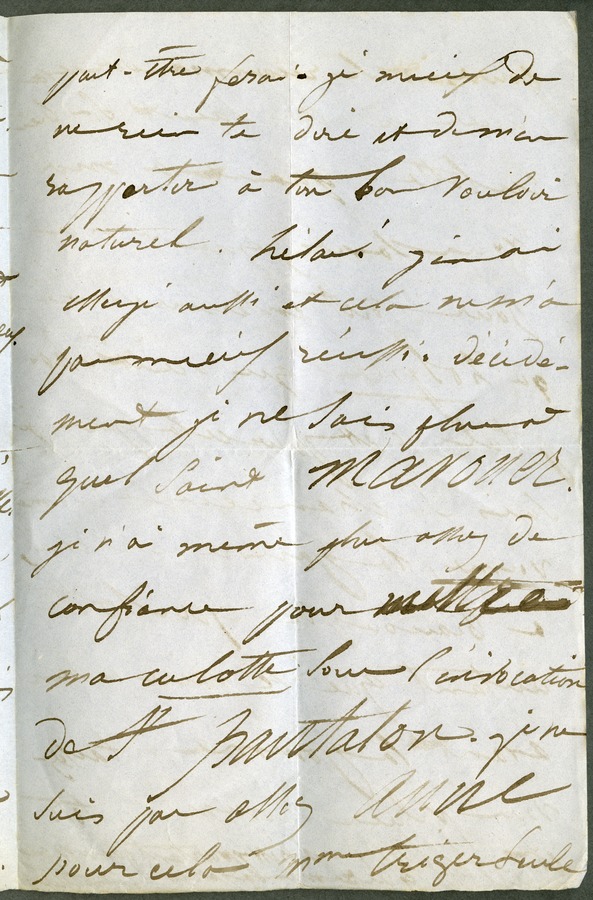 peut-être ferai-je mieux de
ne rien te dire et de m'en
rapporter à ton bon vouloir
naturel. hélas! j'en ai
essayé aussi et cela ne m'a
pas mieux réussi. décidé-
ment je ne sais plus à
quel Saint m'avouer.
je n'ai même plus assez de
confiance pour mettre
ma culotte sous l'invocation
de St pantalon. je ne
suis pas assez anne
pour cela mme triger Seule